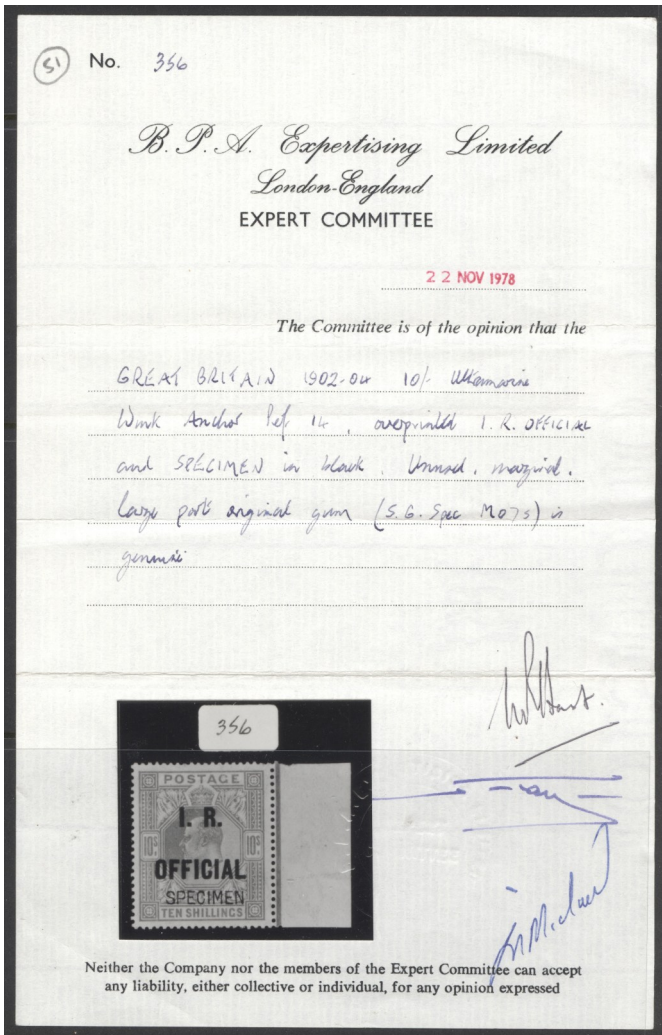 51
No. 356
B. P. A. Expertising Limited
London-England
EXPERT COMMITTEE
22 NOV 1978
The Committee is of the opinion that the
GREAT BRITAIN 1902-04 10/- Ultramarine
Wmk Anchor Perf 14, overprinted I. R. OFFICIAL
and SPECIMEN in black. Unused, marginal,
large part original gum (S.G. Spec MO7s) is
genuine
356
POSTAGE
I. R.
10s 10s
OFFICIAL
SPECIMEN
TEN SHILLINGS
Neither the Company nor the members of the Expert Committee can accept
any liability, either collective or individual, for any opinion expressed